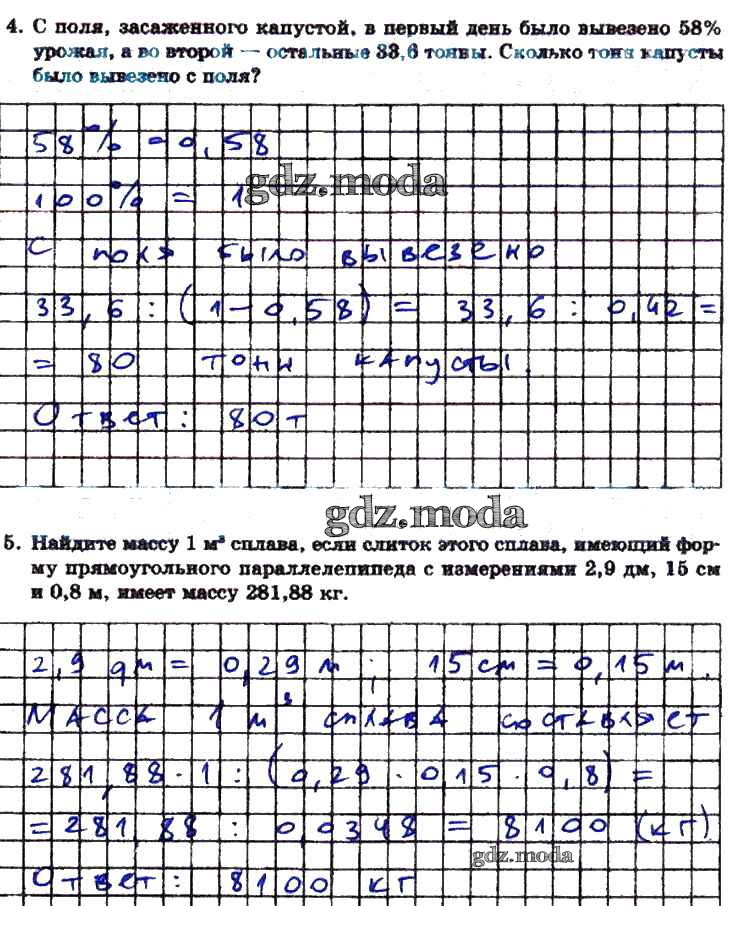 4. С поля, засаженного капустой, в первый день было вывезено 58%
урожая, а во второй — остальные 33,6 тонны. Сколько тонн капусты
было вывезено с поля?
58% = 0,58
gdz.moda
100% = 1
С поля было вывезено
33,6 : (1 – 0,58) = 33,6 : 0,42 =
= 80 тонн капусты.
Ответ: 80 т
gdz.moda
5. Найдите массу 1 м³ сплава, если слиток этого сплава, имеющий фор-
му прямоугольного параллелепипеда с измерениями 2,9 дм, 15 см
и 0,8 м, имеет массу 281,88 кг.
2,9 дм = 0,29 м ; 15 см = 0,15 м.
Масса 1 м³ сплава составляет
281,88 · 1 : (0,29 · 0,15 · 0,8) =
= 281,88 : 0,0348 = 8100 (кг).
gdz.moda
Ответ: 8100 кг